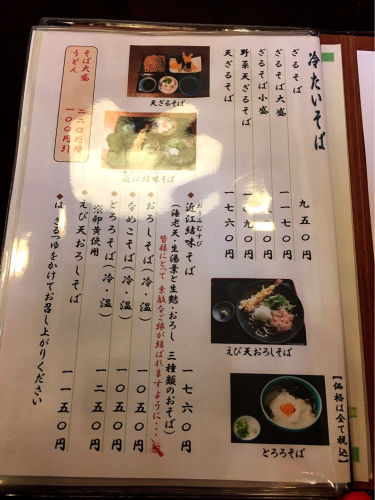 冷たいそば
ざるそば 九五〇円
ざるそば大盛 一一七〇円
ざるそば小盛 四〇円
野菜天ざるそば 九〇円
天ざるそば 一七六〇円
天ざるそば
近江結味そば
そば大盛 二二〇円増
うどん 一〇〇円引
おうみむすび
◆近江結味そば 一七六〇円
(海老天・生湯葉と生麩・おろし 三種類のおそば)
皆様にとって 素敵なご縁が結ばれますように・・・
◆おろしそば(冷・温) 一〇五〇円
◆なめこそば(冷・温) 一〇五〇円
◆とろろそば(冷・温) 一二五〇円
※卵黄使用
◆えび天おろしそば 一一五〇円
◆は、ざるつゆをかけてお召し上がりください
えび天おろしそば
とろろそば
【価格は全て税込】